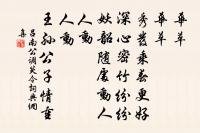 華草
華草
秀發乘春更好
深心密付紛紛
妖韶隨處動人
人動
人動
王孫公子情重
呂南公調笑令詞典網
集